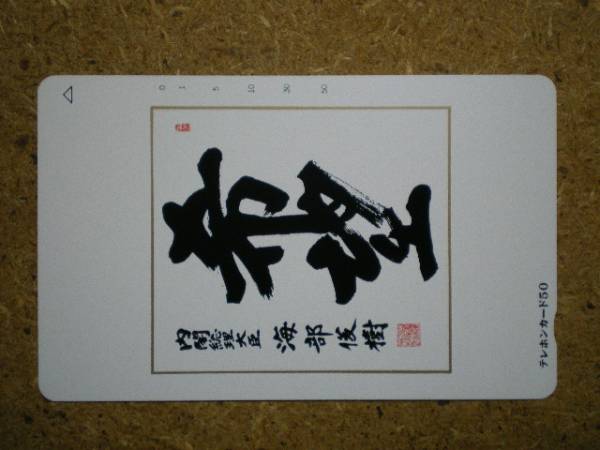 0 1 5 10 30 50
希望
内閣総理大臣 海部俊樹
テレホンカード50